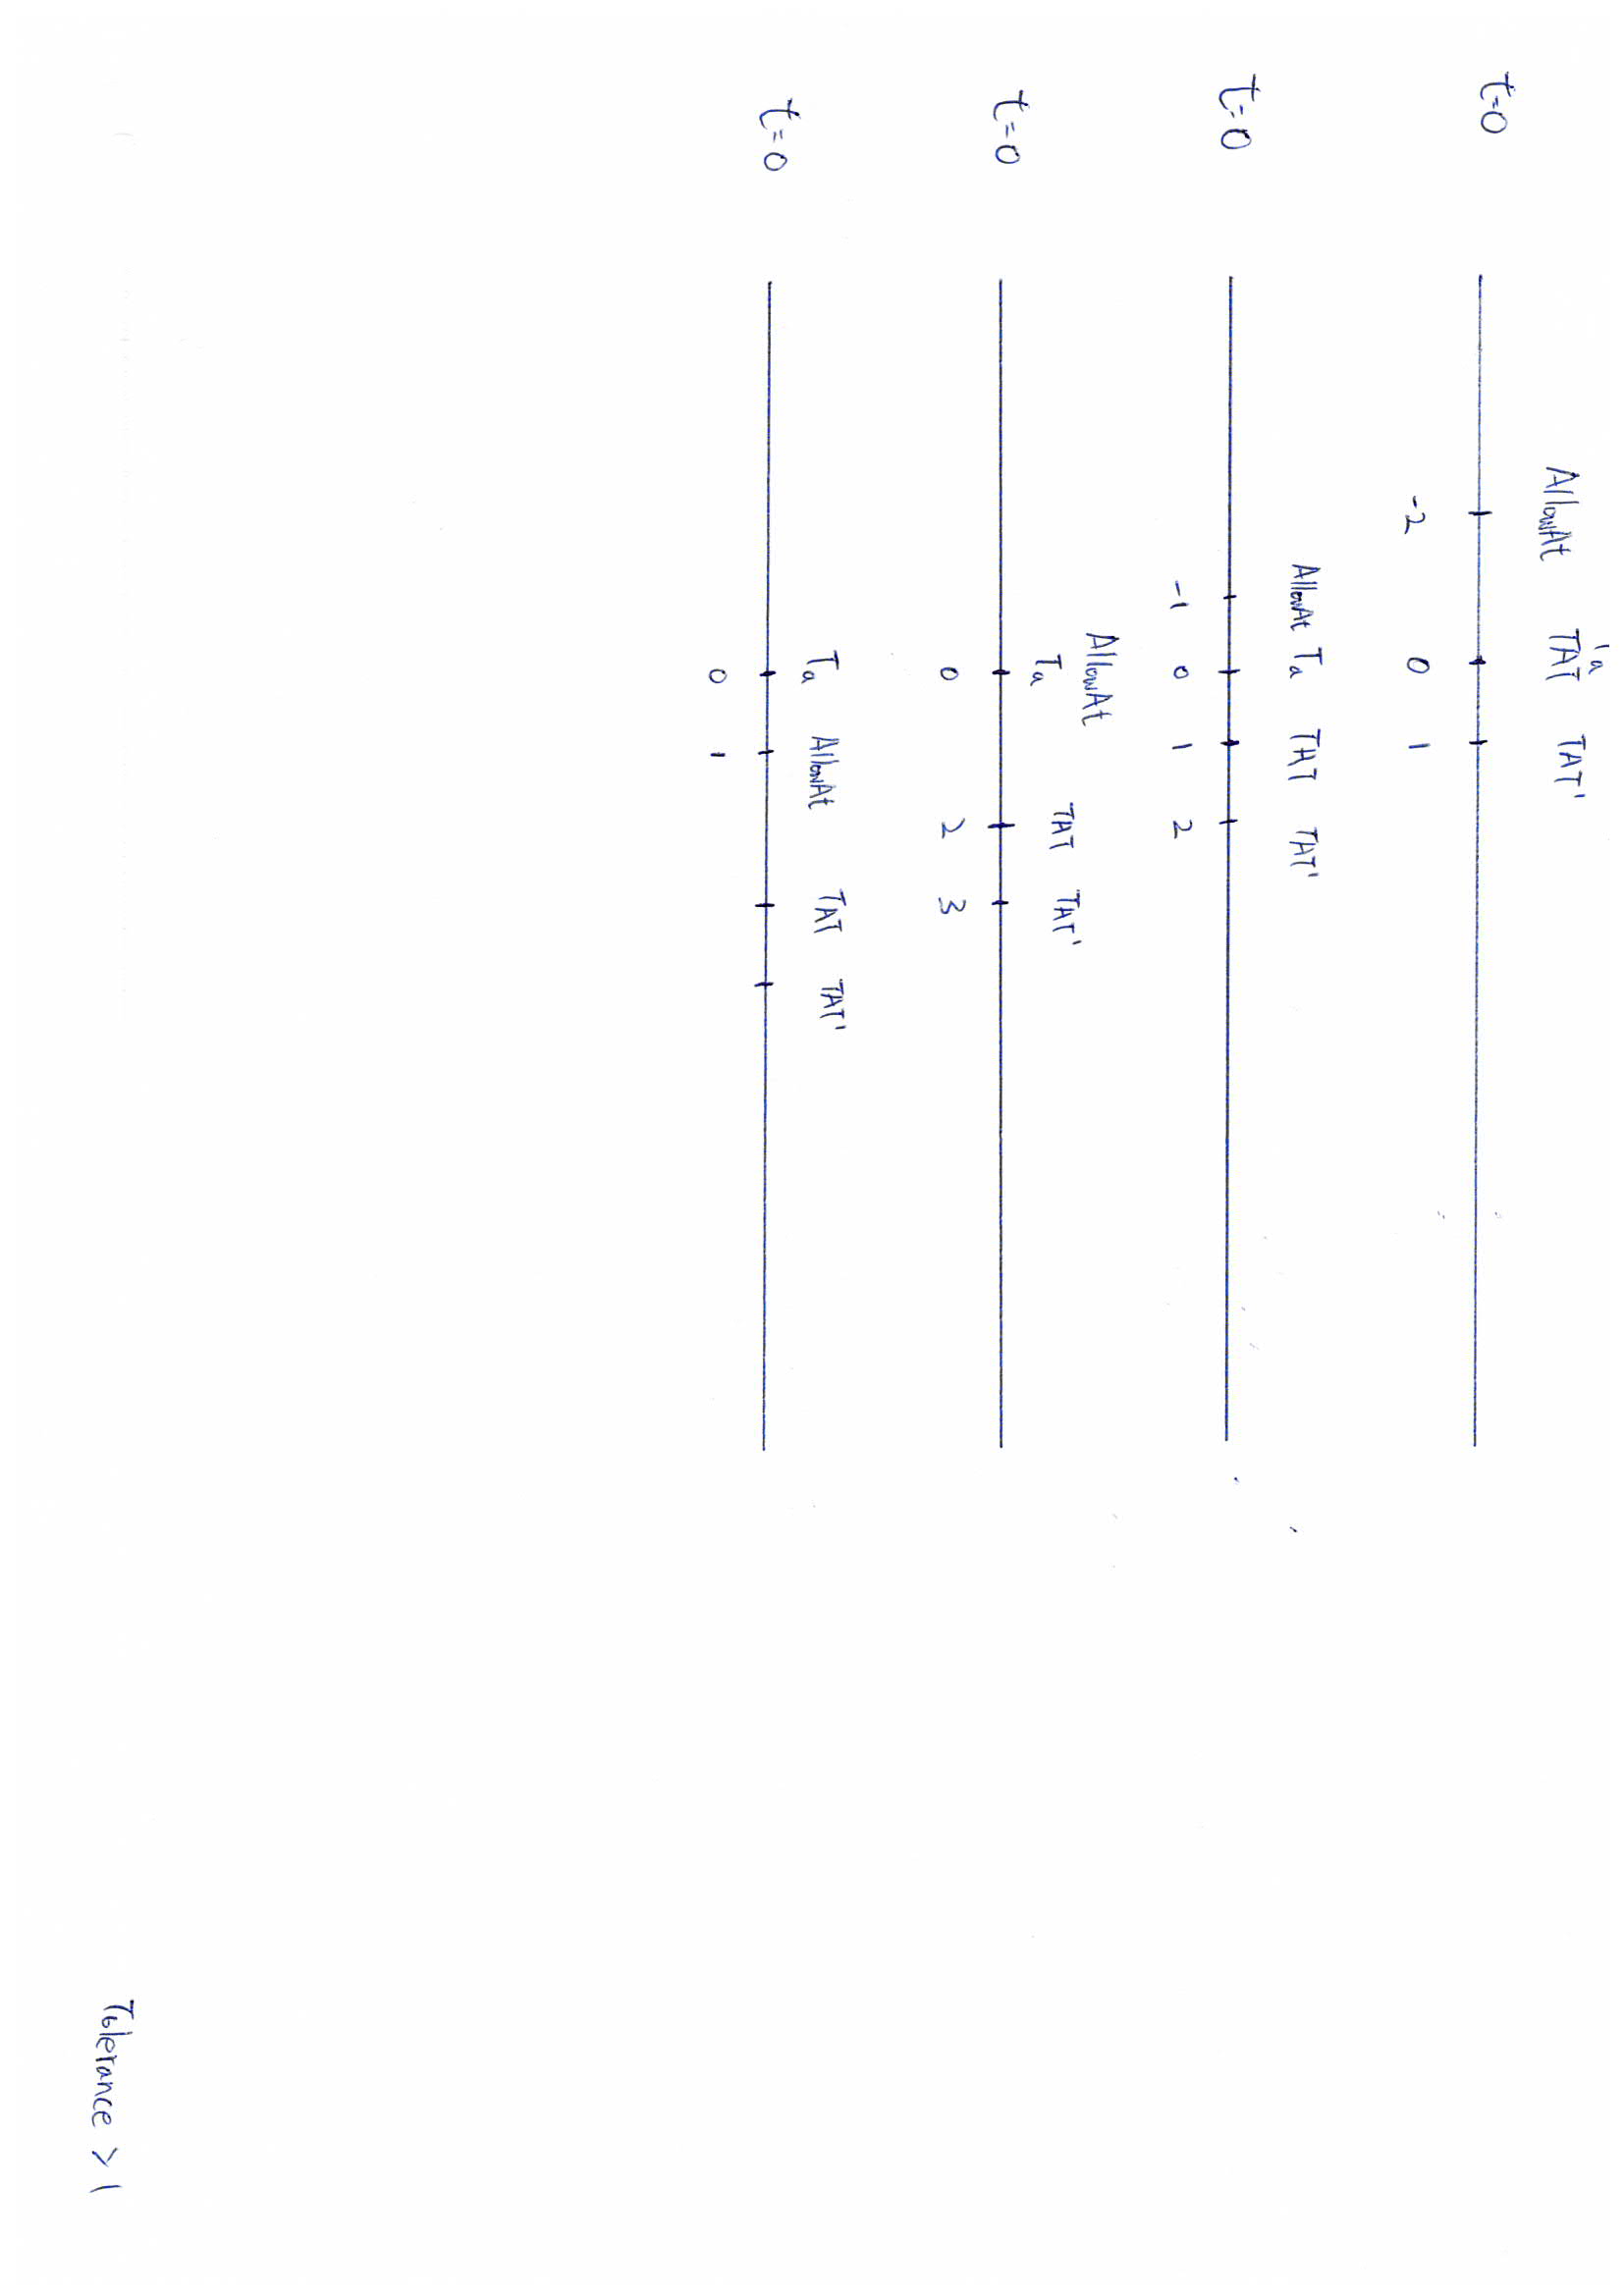 Ta
AllowAt TAT TAT'
t=0
-2 0 1
AllowAt Ta TAT TAT'
t=0
-1 0 1 2
AllowAt
Ta TAT TAT'
t=0
0 2 3
Ta AllowAt TAT TAT'
t=0
0 1
Tolerance > 1